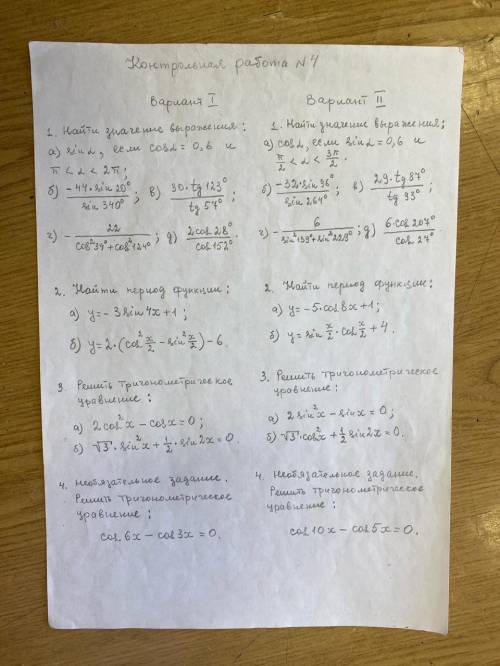 Контрольная работа №4
Вариант I
1. Найти значение выражения:
а) sin α, если cos α = 0,6 и
π < α < 2π;
б) -44·sin 20° / sin 340°; в) 30·tg 123° / tg 57°;
г) - 22 / cos²39°+cos²124°; д) 2cos 28° / cos 152°.
2. Найти период функции:
а) y = -3 sin 4x + 1;
б) y = 2·(cos² x/2 - sin² x/2) - 6.
3. Решить тригонометрическое
уравнение:
а) 2cos²x - cos x = 0;
б) √3·sin²x + 1/2·sin 2x = 0.
4. Необязательное задание.
Решить тригонометрическое
уравнение:
cos 6x - cos 3x = 0.
Вариант II
1. Найти значение выражения;
а) cos α, если sin α = 0,6 и
π/2 < α < 3π/2.
б) -32·sin 96° / sin 264°; в) 29·tg 87° / tg 93°;
г) - 6 / sin²139°+sin²229°; д) 6·cos 207° / cos 27°
2. Найти период функции:
а) y = -5·cos 8x + 1;
б) y = sin x/2 · cos x/2 + 4.
3. Решить тригонометрическое
уравнение:
а) 2 sin²x - sin x = 0;
б) √3·cos²x + 1/2 sin 2x = 0.
4. Необязательное задание.
Решить тригонометрическое
уравнение:
cos 10x - cos 5x = 0.